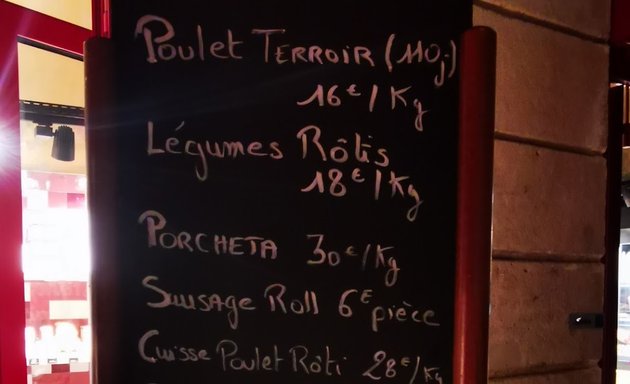 Poulet Terroir (110j)
16€/Kg
Légumes Rôtis
18€/Kg
Porcheta 30€/Kg
Sausage Roll 6€ pièce
Cuisse Poulet Rôti 28€/Kg